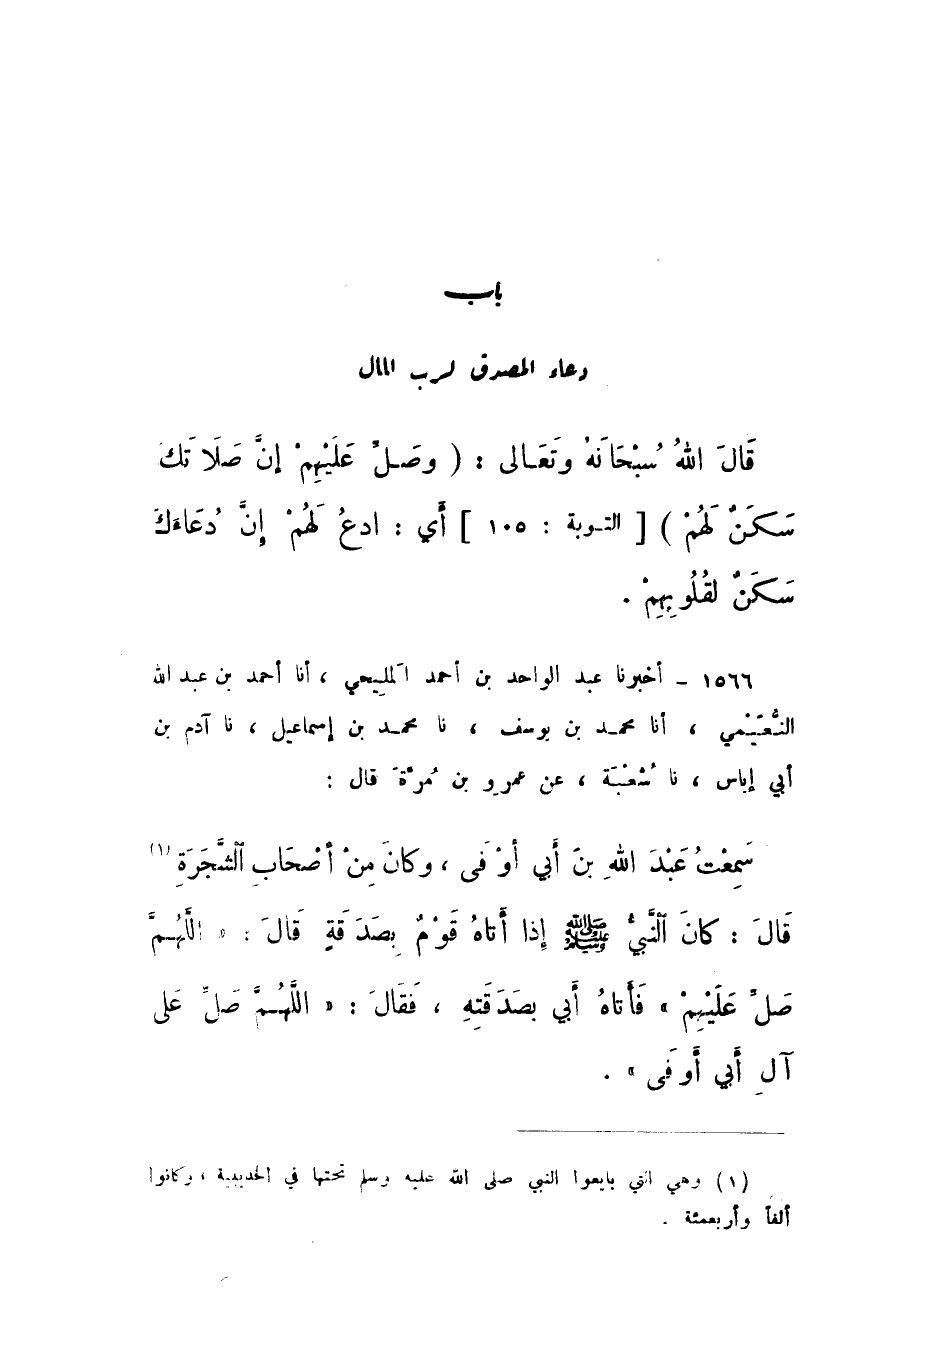 باب
دعاء المصدق لرب المال
قَالَ اللهُ سُبْحَانَهُ وَتَعَالى : ( وصَلِّ عَلَيْهِمْ إنَّ صَلَاتَكَ
سَكَنٌ لَهُمْ ) [ التوبة : ١٠٥ ] أَي : ادعُ لَهُمْ إِنَّ دُعَاءَكَ
سَكَنٌ لقُلُوبِهِمْ .
١٥٦٦ – أخبرنا عبد الواحد بن أحمد المَلِيحي ، أنا أحمد بن عبد الله
النُّعَيْمي ، أنا محمد بن يوسف ، نا محمد بن إسماعيل ، نا آدم بن
أبي إياس ، نا شُعْبَة ، عن عمرو بن مُرَّةَ قال :
سَمِعْتُ عَبْدَ اللهِ بنَ أَبي أوْفَى ، وكَانَ مِنْ أصْحَابِ الشَّجَرَةِ (١)
قَالَ : كَانَ النَّبيُّ ﷺ إذا أَتاهُ قَوْمٌ بِصَدَقَةٍ قَالَ : « اللَّهُمَّ
صَلِّ عَلَيْهِمْ » فَأَتاهُ أَبي بصَدَقَتِهِ ، فَقَالَ : « اللَّهُمَّ صَلِّ عَلَى
آلِ أَبي أَوفَى » .
(١) وهي التي بايعوا النبي صلى الله عليه وسلم تحتها في الحديبية ، وكانوا
ألفاً وأربعمئة .